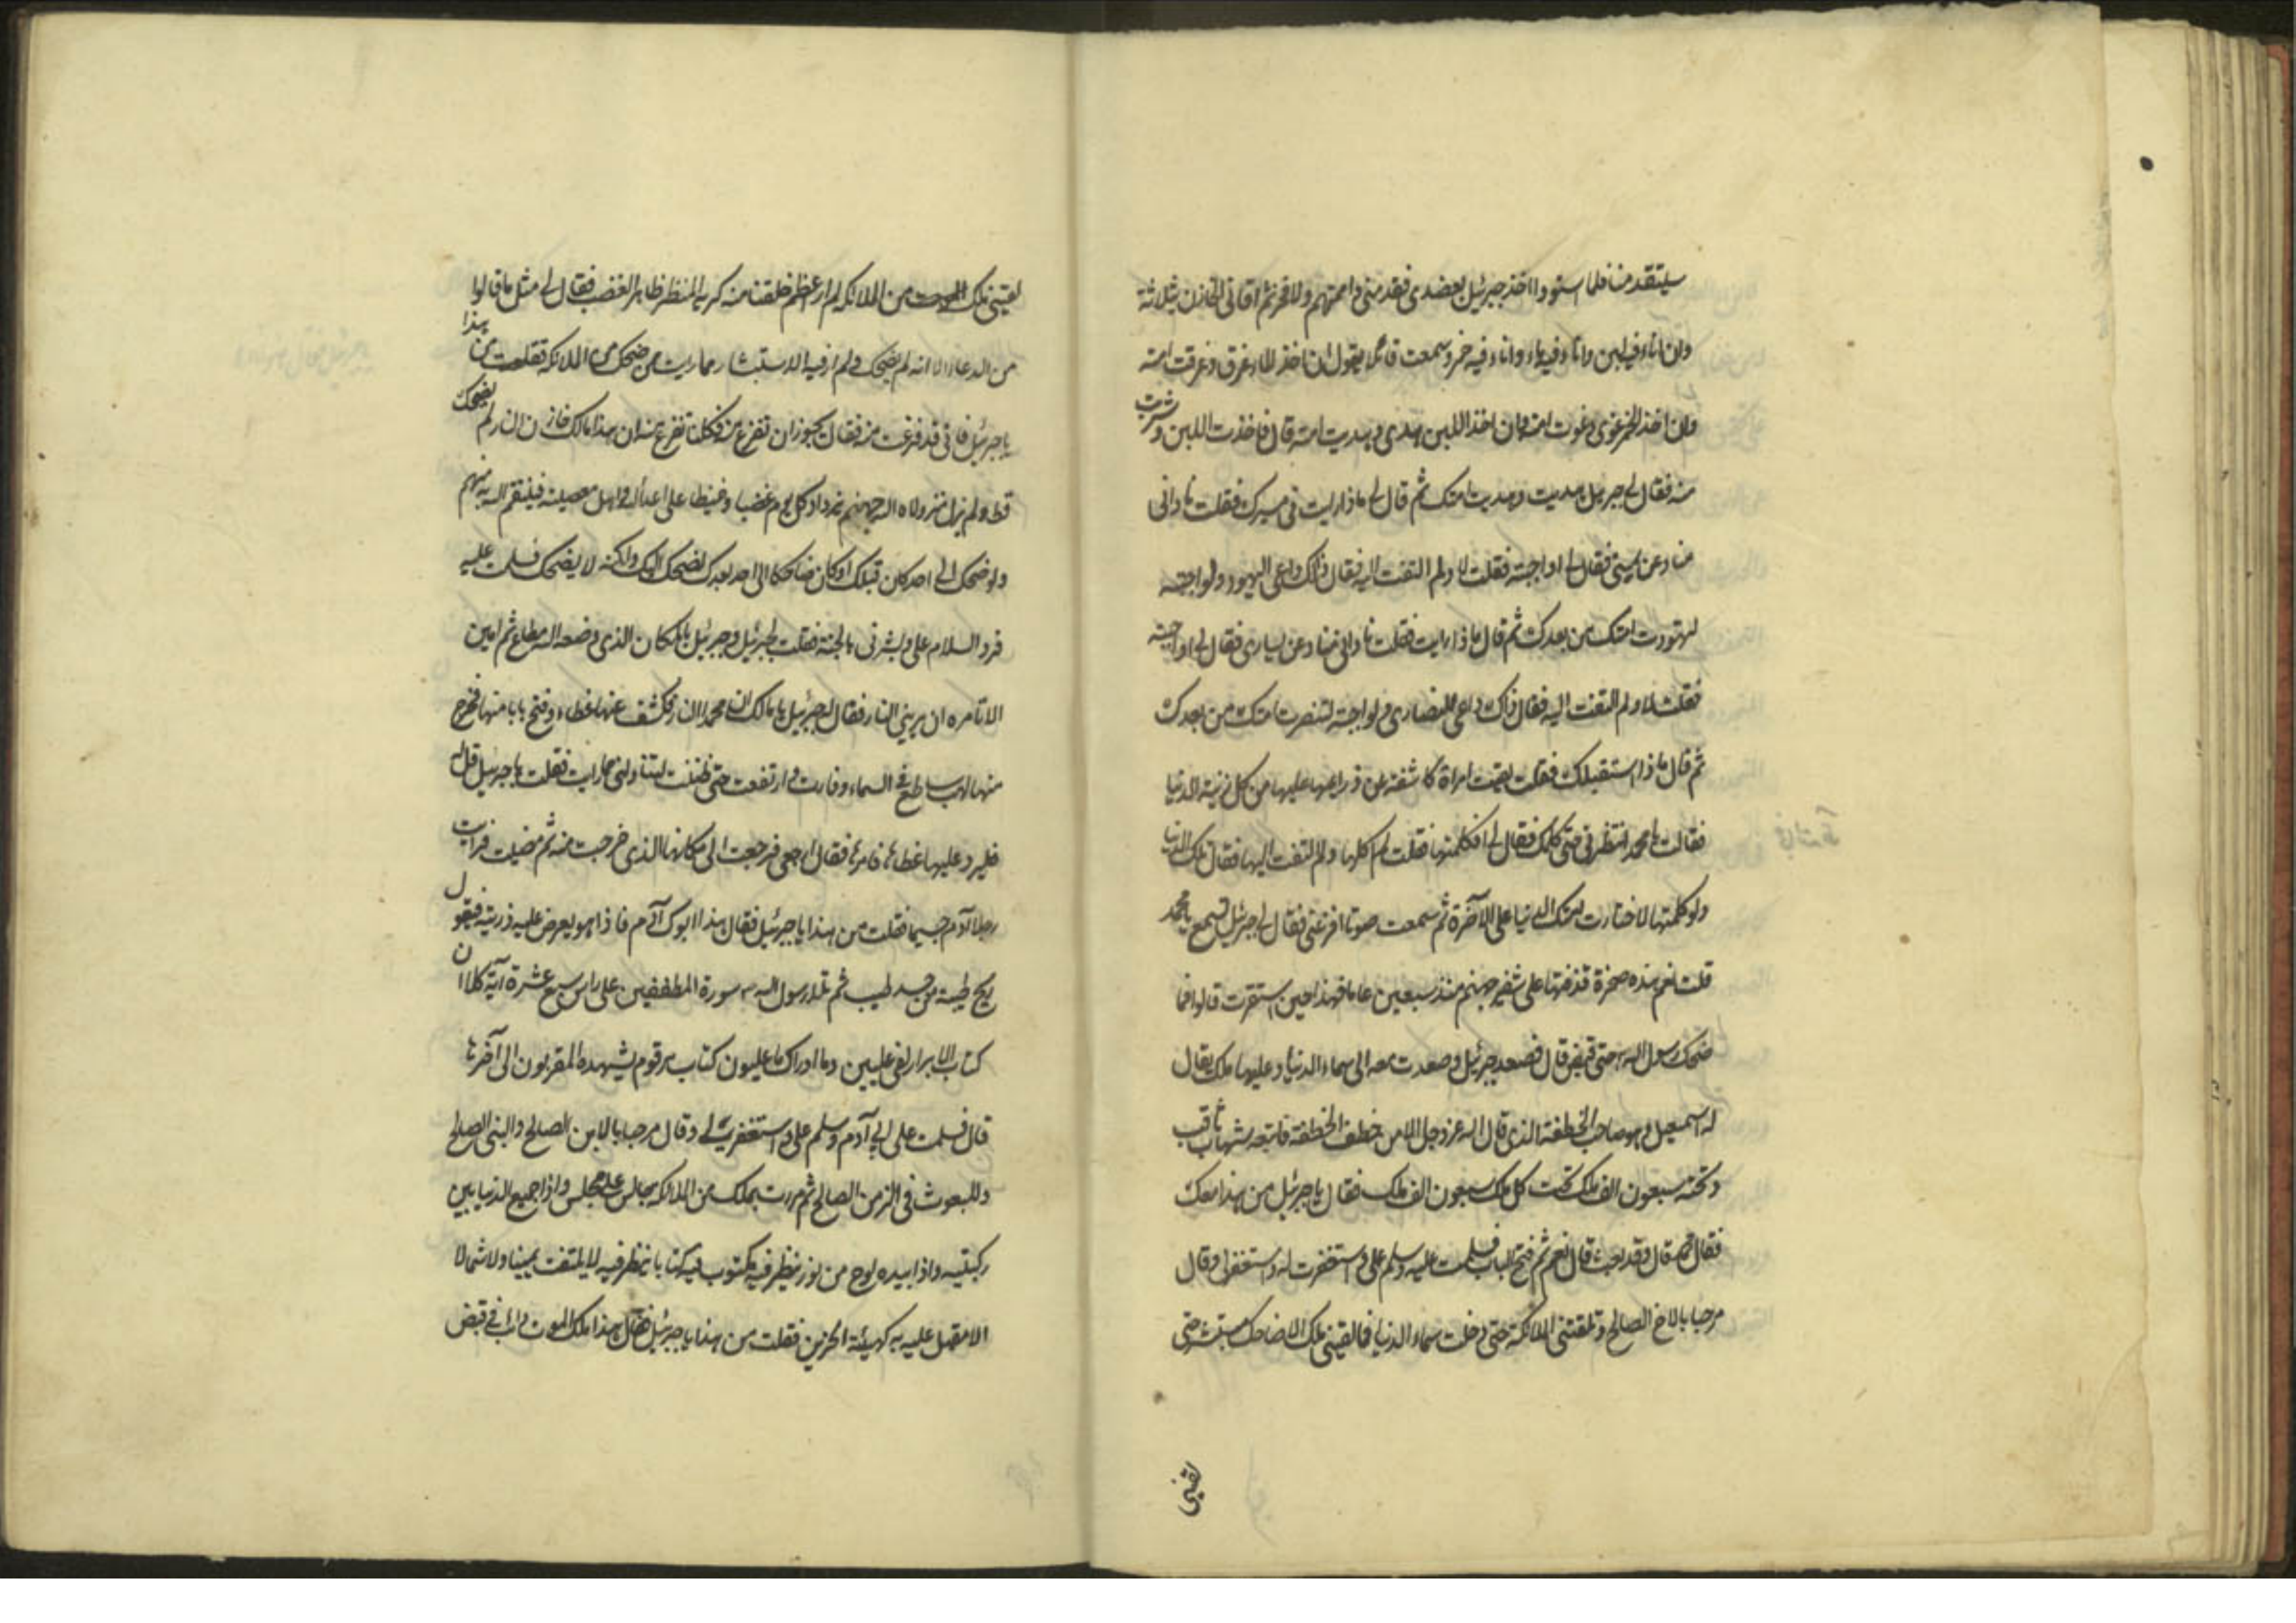 سيتقدمنا فلما استووا اخذ جبرئيل بعضدى فقدمنى و اممتهم ولا فخر ثم اتانى الخازن بثلاثة
اوان اناء فيه لبن واناء فيه ماء واناء فيه خمر وسمعت قائلا يقول ان اخذ الماء غرق وغرقت امته
وان اخذ الخمر غوى وغوت امته وان اخذ اللبن هدى وهديت امته قال فاخذت اللبن وشربت
منه فقال لى جبرئيل هديت وهديت امتك ثم قال لى ماذا رايت فى مسيرك فقلت نادانى
مناد عن يمينى فقال لى او اجبته فقلت لا ولم التفت اليه فقال ذاك داعى اليهود ولو اجبته
لهتودت امتك من بعدك ثم قال ماذا رايت فقلت نادانى مناد عن يسارى فقال لى او اجبته
فقلت لا ولم التفت اليه فقال ذاك داعى النصارى ولو اجبته لتنصرت امتك من بعدك
ثم قال ماذا استقبلك فقلت لقيت امراة كاشفة عن ذراعيها عليها من كل زينة الدنيا
فقالت يا محمد انتظرنى حتى اكلمك فقال لى افكلمتها فقلت لم اكلمها ولم التفت اليها فقال تلك الدنيا
ولو كلمتها لاختارت امتك الدنيا على الآخرة ثم سمعت صوتا افزعنى فقال لى جبرئيل تسمع يا محمد
قلت نعم هذه صخرة قذفتها على شفير جهنم منذ سبعين عاما فهذا حين استقرت قالوا فما
ضحك رسول الله حتى قبض قال فصعد جبرئيل وصعدت معه الى سماء الدنيا وعليها ملك يقال
له اسمعيل وهو صاحب الخطفة الذى قال الله عزوجل الا من خطف الخطفة فاتبعه شهاب ثاقب
وتحته سبعون الف ملك تحت كل ملك سبعون الف ملك فقال يا جبرئيل من هذا معك
فقال محمد قال وقد بعث قال نعم ثم فتح الباب فسلمت عليه وسلم على واستغفرت له واستغفر لى وقال
مرحبا بالاخ الصالح وتلقتنى الملائكة حتى دخلت سماء الدنيا فما لقينى ملك الا ضاحك مستبشر حتى
لقينى
لقينى ملك من الملائكة لم ار اعظم خلقا منه كريه المنظر ظاهر الغضب فقال لى مثل ما قالوا
من الدعاء الا انه لم يضحك ولم ار فيه الاستبشار مما رايت ممن ضحك من الملائكة فقلت من هذا
يا جبرئيل فانى قد فزعت منه فقال يجوز ان تفزع منه فكلنا نفزع منه ان هذا مالك خازن النار لم يضحك
قط ولم يزل منذ ولاه الله جهنم يزداد كل يوم غضبا وغيظا على اعداء الله واهل معصيته فينتقم الله به منهم
ولو ضحك الى احد كان قبلك او كان ضاحكا الى احد بعدك لضحك اليك ولكنه لا يضحك فسلمت عليه
فرد السلام على وبشرنى بالجنة فقلت لجبرئيل وجبرئيل بالمكان الذى وضعه الله مطاع ثم امين
الا تامره ان يرينى النار فقال له جبرئيل يا مالك ار محمدا النار فكشف عنها غطاء وفتح بابا منها فخرج
منها لهب ساطع فى السماء وفارت وارتفعت حتى ظننت ليتناولنى مما رايت فقلت يا جبرئيل قل له
فليرد عليها غطاءها فامرها فقال ارجعى فرجعت الى مكانها الذى خرجت منه ثم مضيت فرايت
رجلا آدم جسيما فقلت من هذا يا جبرئيل فقال هذا ابوك آدم فاذا هو يعرض عليه ذريته فيقول
ريح طيبة من جسد طيب ثم تلا رسول الله سورة المطففين على راس سبع عشرة آية كلا ان
كتاب الابرار لفى عليين وما ادراك ما عليون كتاب مرقوم يشهده المقربون الى آخرها
قال فسلمت على ابى آدم وسلم على واستغفرت له واستغفر لى وقال مرحبا بالابن الصالح والنبى الصالح
والمبعوث فى الزمن الصالح ثم مررت بملك من الملائكة جالس على مجلس واذا جميع الدنيا بين
ركبتيه واذا بيده لوح من نور ينظر فيه مكتوب فيه كتابا ينظر فيه لا يلتفت يمينا ولا شمالا
الا مقبل عليه به كهيئة الحزين فقلت من هذا يا جبرئيل فقال هذا ملك الموت دائب فى قبض